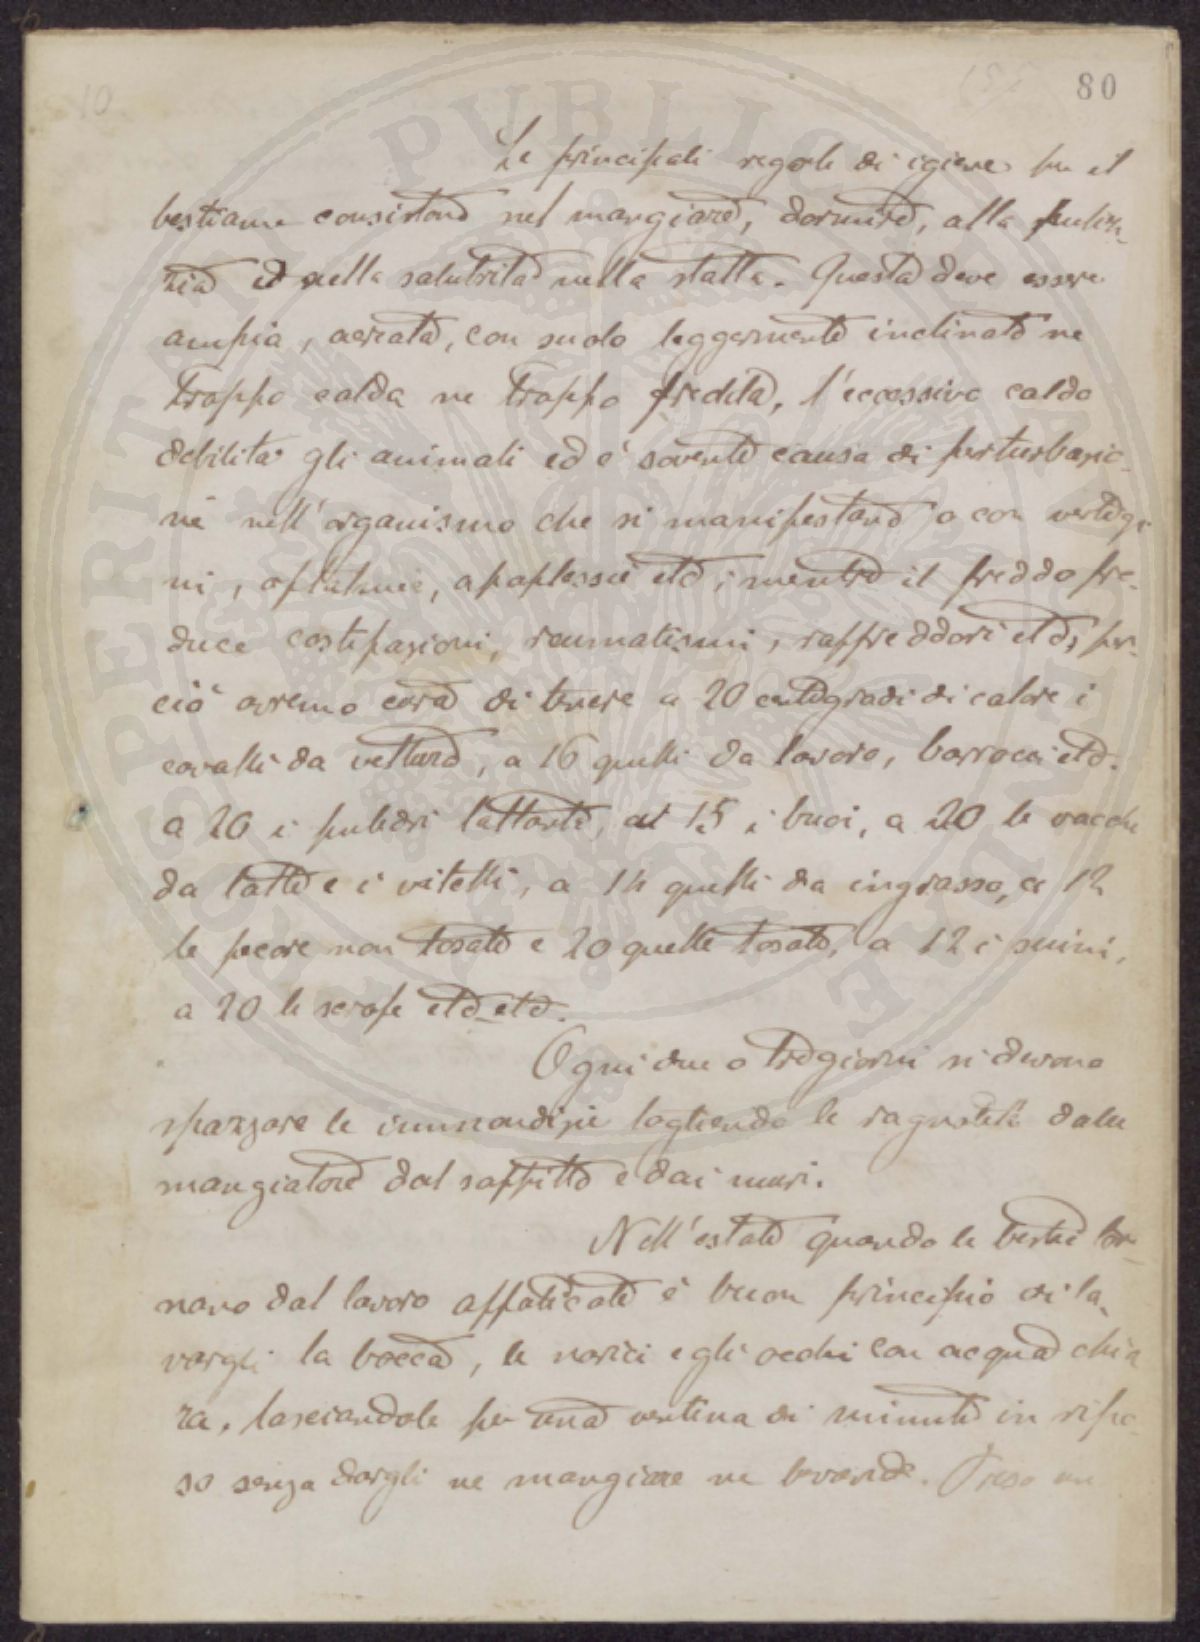 80
Le principali regole di igiene per il
bestiame consistono nel mangiare, dormire, alla puliz-
zia ed nella salubrità nella stalla. Questa deve essere
ampia, aereata, con suolo leggermente inclinato ne
troppo calda ne troppo fredda, l'eccessivo caldo
debilita gli animali ed è sovente causa di perturbazio-
ne nell'organismo che si manifestano o con vertigi
ni, oftalmie, apoplessie etc; mentre il freddo pro-
duce costipazioni, reumatismi, raffreddori etc, per-
ciò avremo cura di tenere a 20 centigradi di calore i
cavalli da vettura, a 16 quelli da lavoro, barrocci etc.
a 20 i puledri lattanti, a 15 i buoi, a 20 le vacche
da latte e i vitelli, a 14 quelli da ingrasso, a 12
le pecore non tosate e 20 quelle tosate, a 12 i suini,
a 20 le scrofe etc etc.
Ogni due o tre giorni si devono
spazzare le immondizie togliendo le ragnatele dalle
mangiatore dal soffitto e dai muri.
Nell'estate quando le bestie tor-
nano dal lavoro affaticate è buon principio di la-
vargli la bocca, le narici e gli occhi con acqua chia
ra, lasciandole per una ventina di minuti in ripo-
so senza dargli ne mangiare ne bevande. Preso un
PROSPERITATI PUBLICAE AUGENDAE